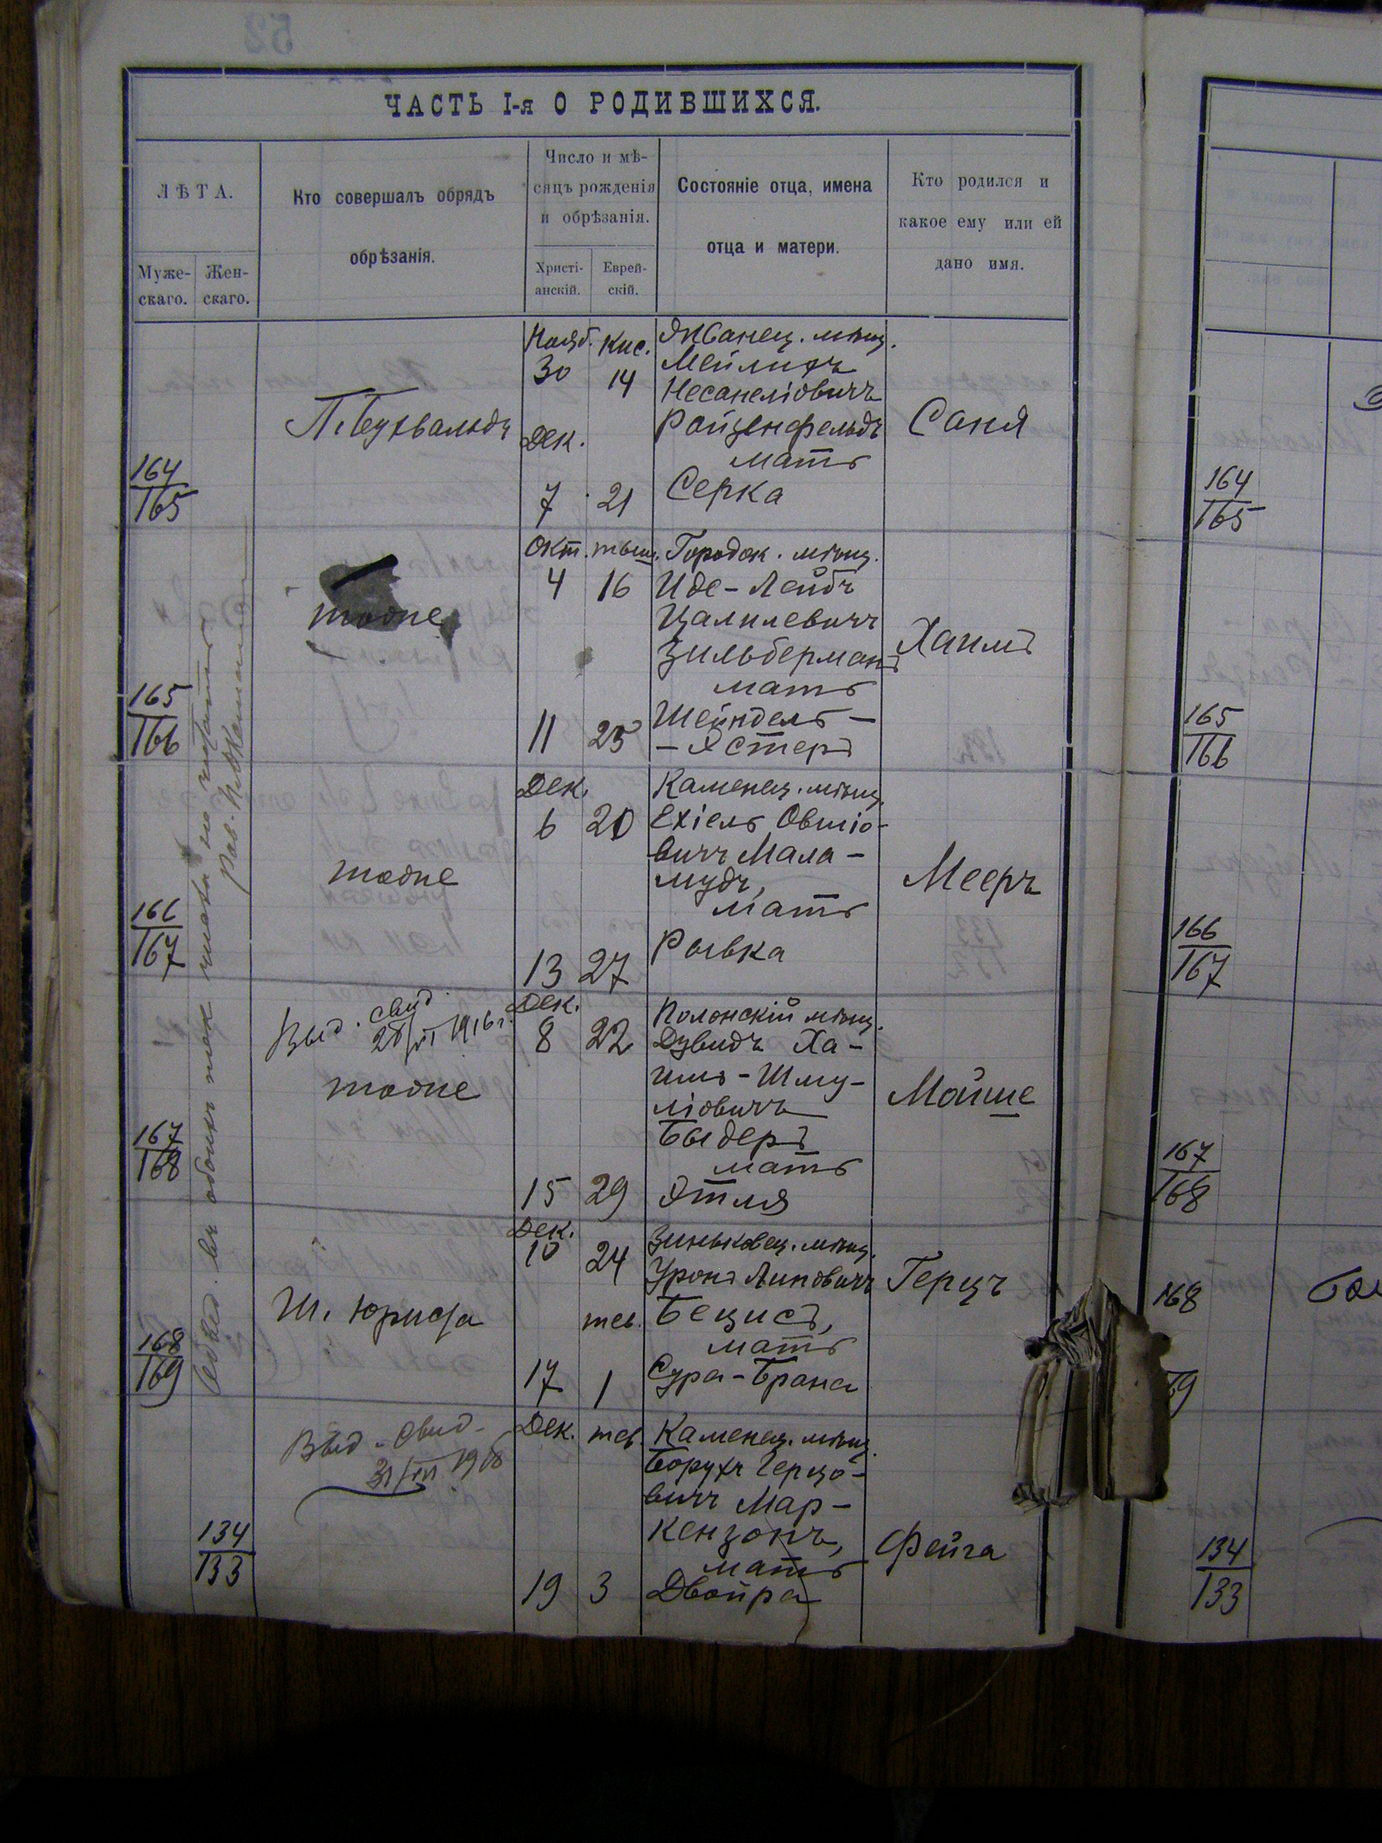 ЧАСТЬ I-я О РОДИВШИХСЯ.
ЛѢТА.
Муже-
скаго.
Жен-
скаго.
Кто совершалъ обрядъ
обрѣзанія.
Число и мѣ-
сяцъ рожденія
и обрѣзанія.
Христі-
анскій.
Еврей-
скій.
Состояніе отца, имена
отца и матери.
Кто родился и
какое ему или ей
дано имя.
164
165
П. Бухвальдъ
Нояб. Кис.
30 14
Дек.
7 21
Жванец. мѣщ.
Мейлихъ
Несанеліовичъ
Райценфельдъ
мать
Серка
Саня
165
166
тоже
Окт. тыш.
4 16
11 23
Городок. мѣщ.
Иде-Лейбъ
Цалилевичъ
Зильберманъ
мать
Шейндель-
-Эстеръ
Хаимъ
166
167
тоже
Дек.
6 20
13 27
Каменец. мѣщ.
Ехіель Овшіо-
вичъ Мала-
мудъ,
мать
Рывка
Мееръ
167
168
Выд. свид.
1916 г.
тоже
Дек.
8 22
15 29
Полонскій мѣщ.
Дувидъ Ха-
имъ-Шму-
ліовичъ
Быдеръ
мать
Этля
Мойше
168
169
Ш. Юриста
Дек.
10 24
тев.
17 1
Зиньковец. мѣщ.
Уронъ Липовичъ
Бецисъ,
мать
Сура-Брана
Герцъ
134
133
Выд. свид.
Дек. тев.
19 3
Каменец. мѣщ.
Борухъ Герцо-
вичъ Мар-
кензонъ,
мать
Двойра
Фейга
164
165
165
166
166
167
167
168
168
134
133